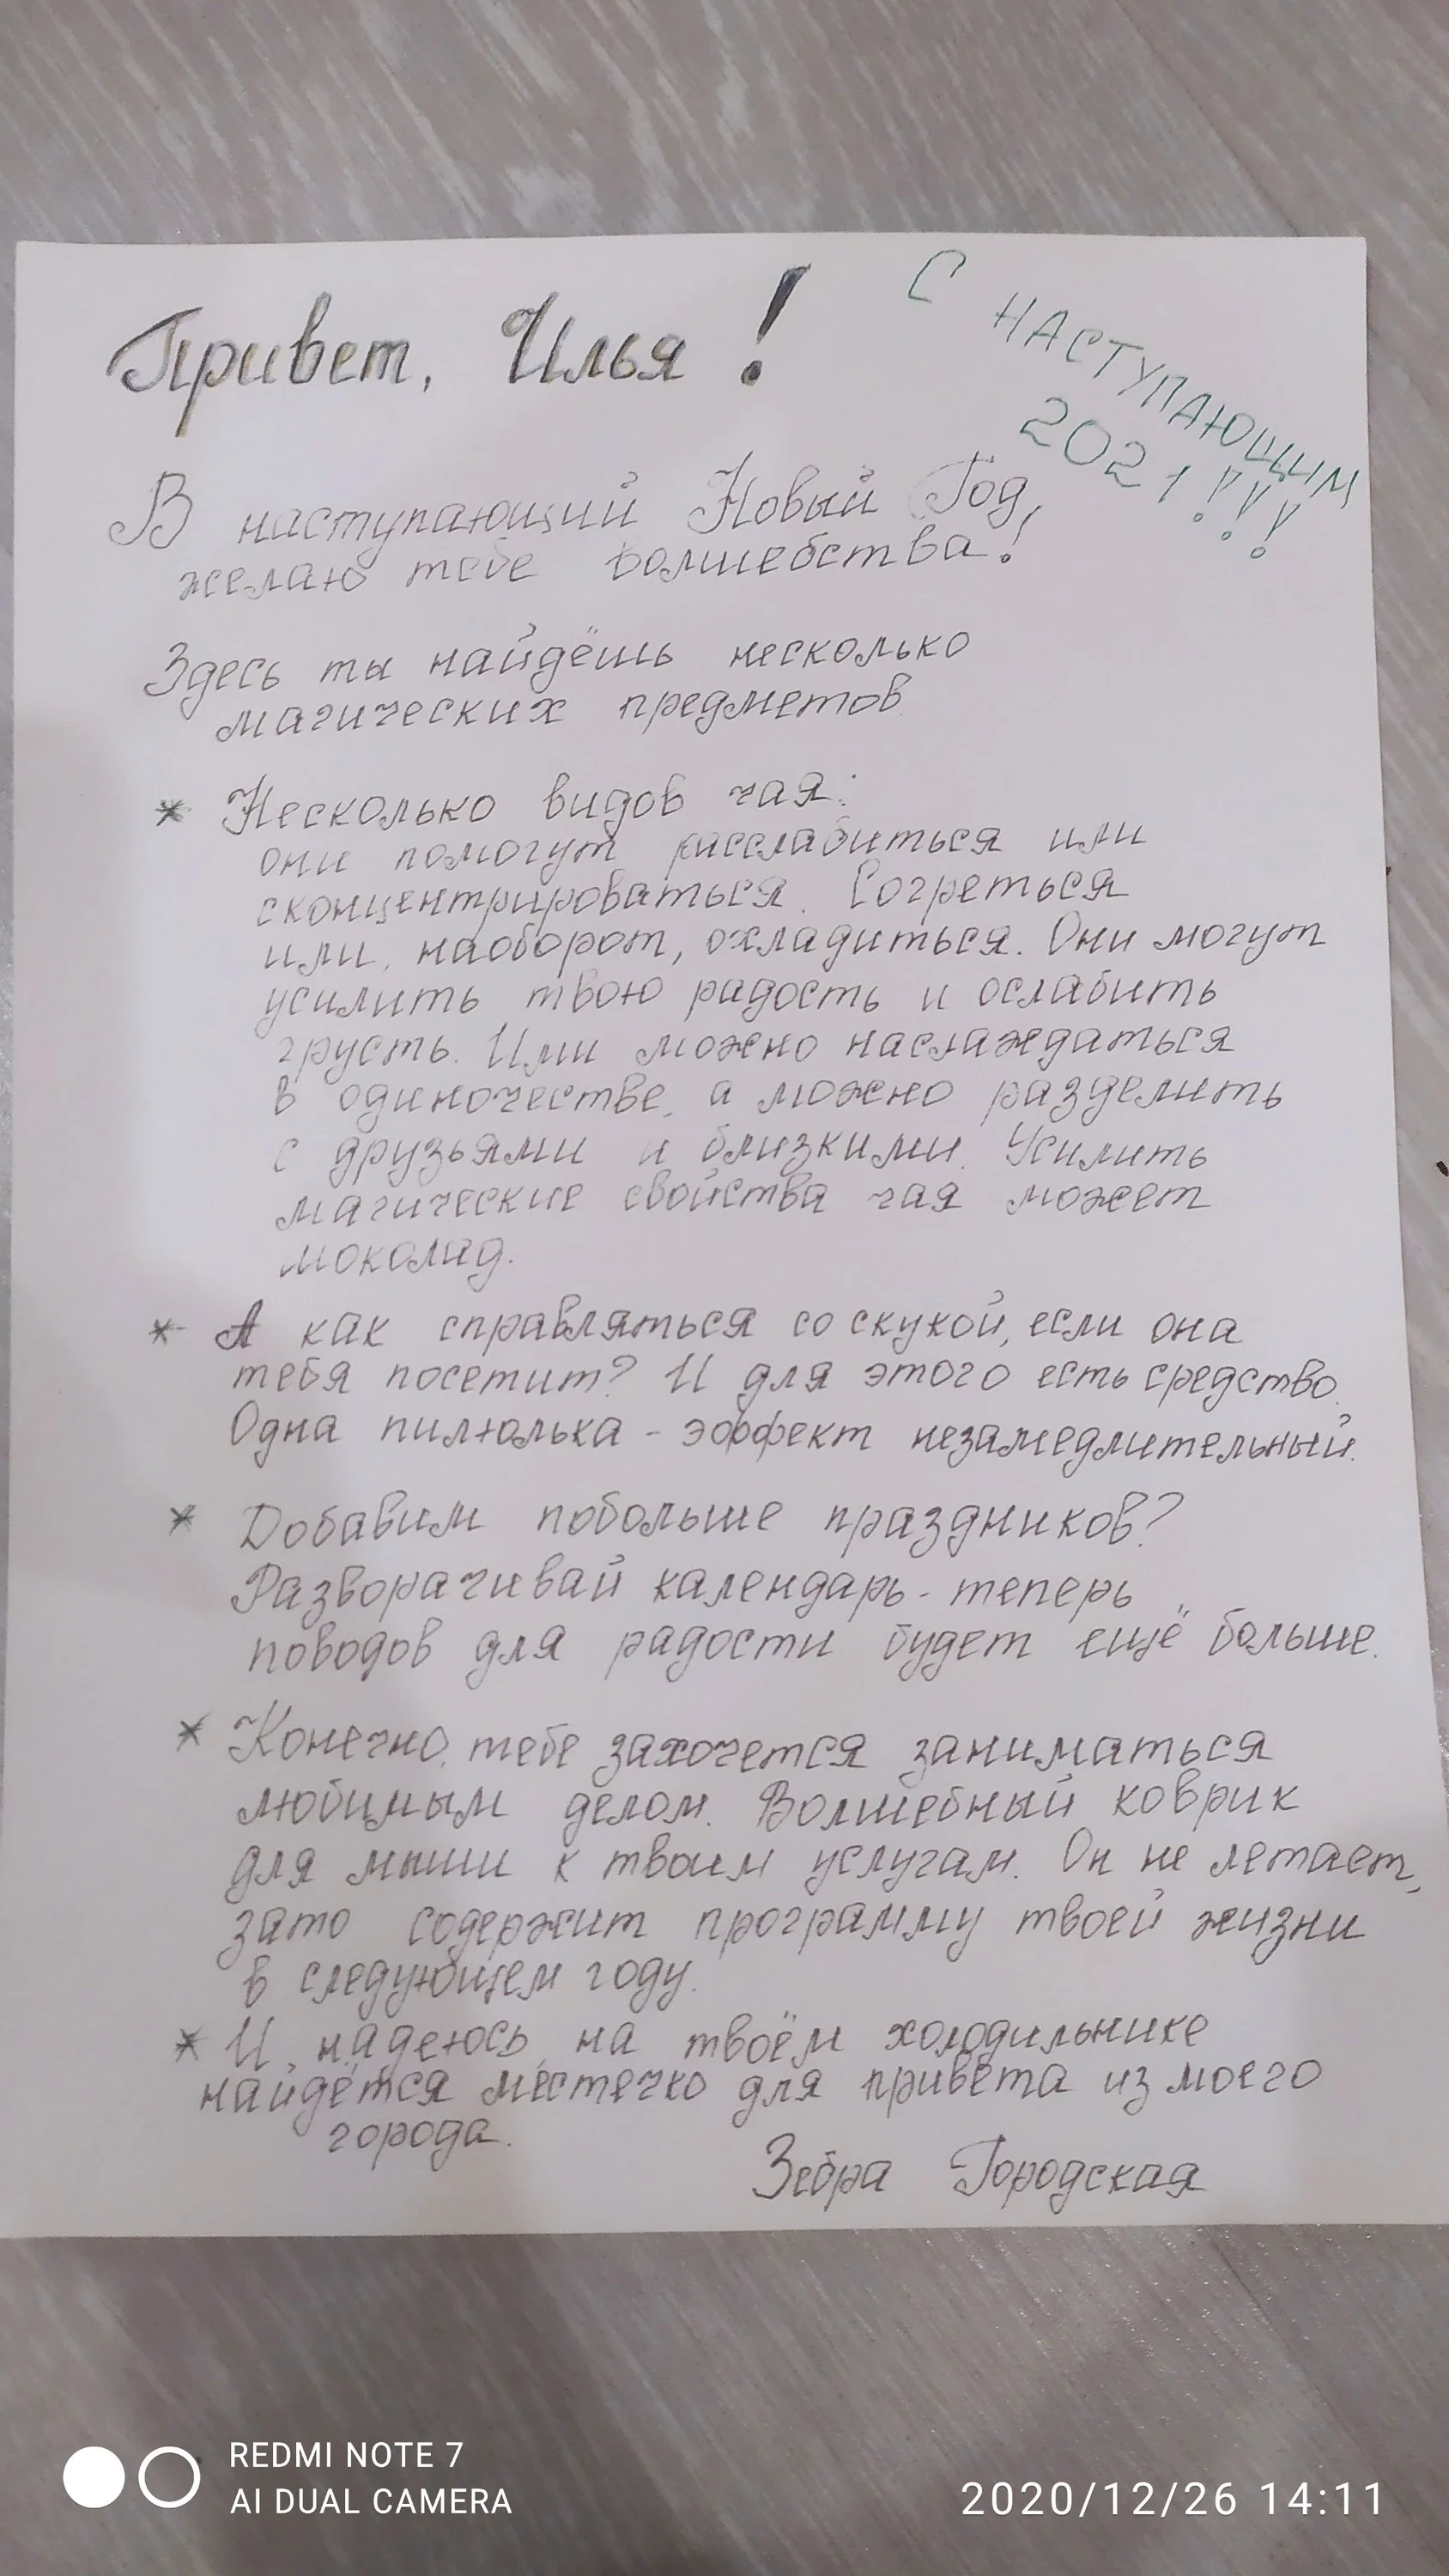 Привет, Илья!
С НАСТУПАЮЩИМ
2021!!!
В наступающий Новый Год,
желаю тебе волшебства!
Здесь ты найдёшь несколько
магических предметов
* Несколько видов чая:
они помогут расслабиться или
сконцентрироваться. Согреться
или, наоборот, охладиться. Они могут
усилить твою радость и ослабить
грусть. Ими можно наслаждаться
в одиночестве, а можно разделить
с друзьями и близкими. Усилить
магические свойства чая может
шоколад.
* А как справляться со скукой, если она
тебя посетит? И для этого есть средство.
Одна пилюлька - эффект незамедлительный.
* Добавим побольше праздников?
Разворачивай календарь - теперь
поводов для радости будет ещё больше.
* Конечно, тебе захочется заниматься
любимым делом. Волшебный коврик
для мыши к твоим услугам. Он не летает,
зато содержит программу твоей жизни
в следующем году.
* И, надеюсь, на твоём холодильнике
найдётся местечко для привета из моего
города.
Зебра Городская
REDMI NOTE 7
AI DUAL CAMERA
2020/12/26 14:11